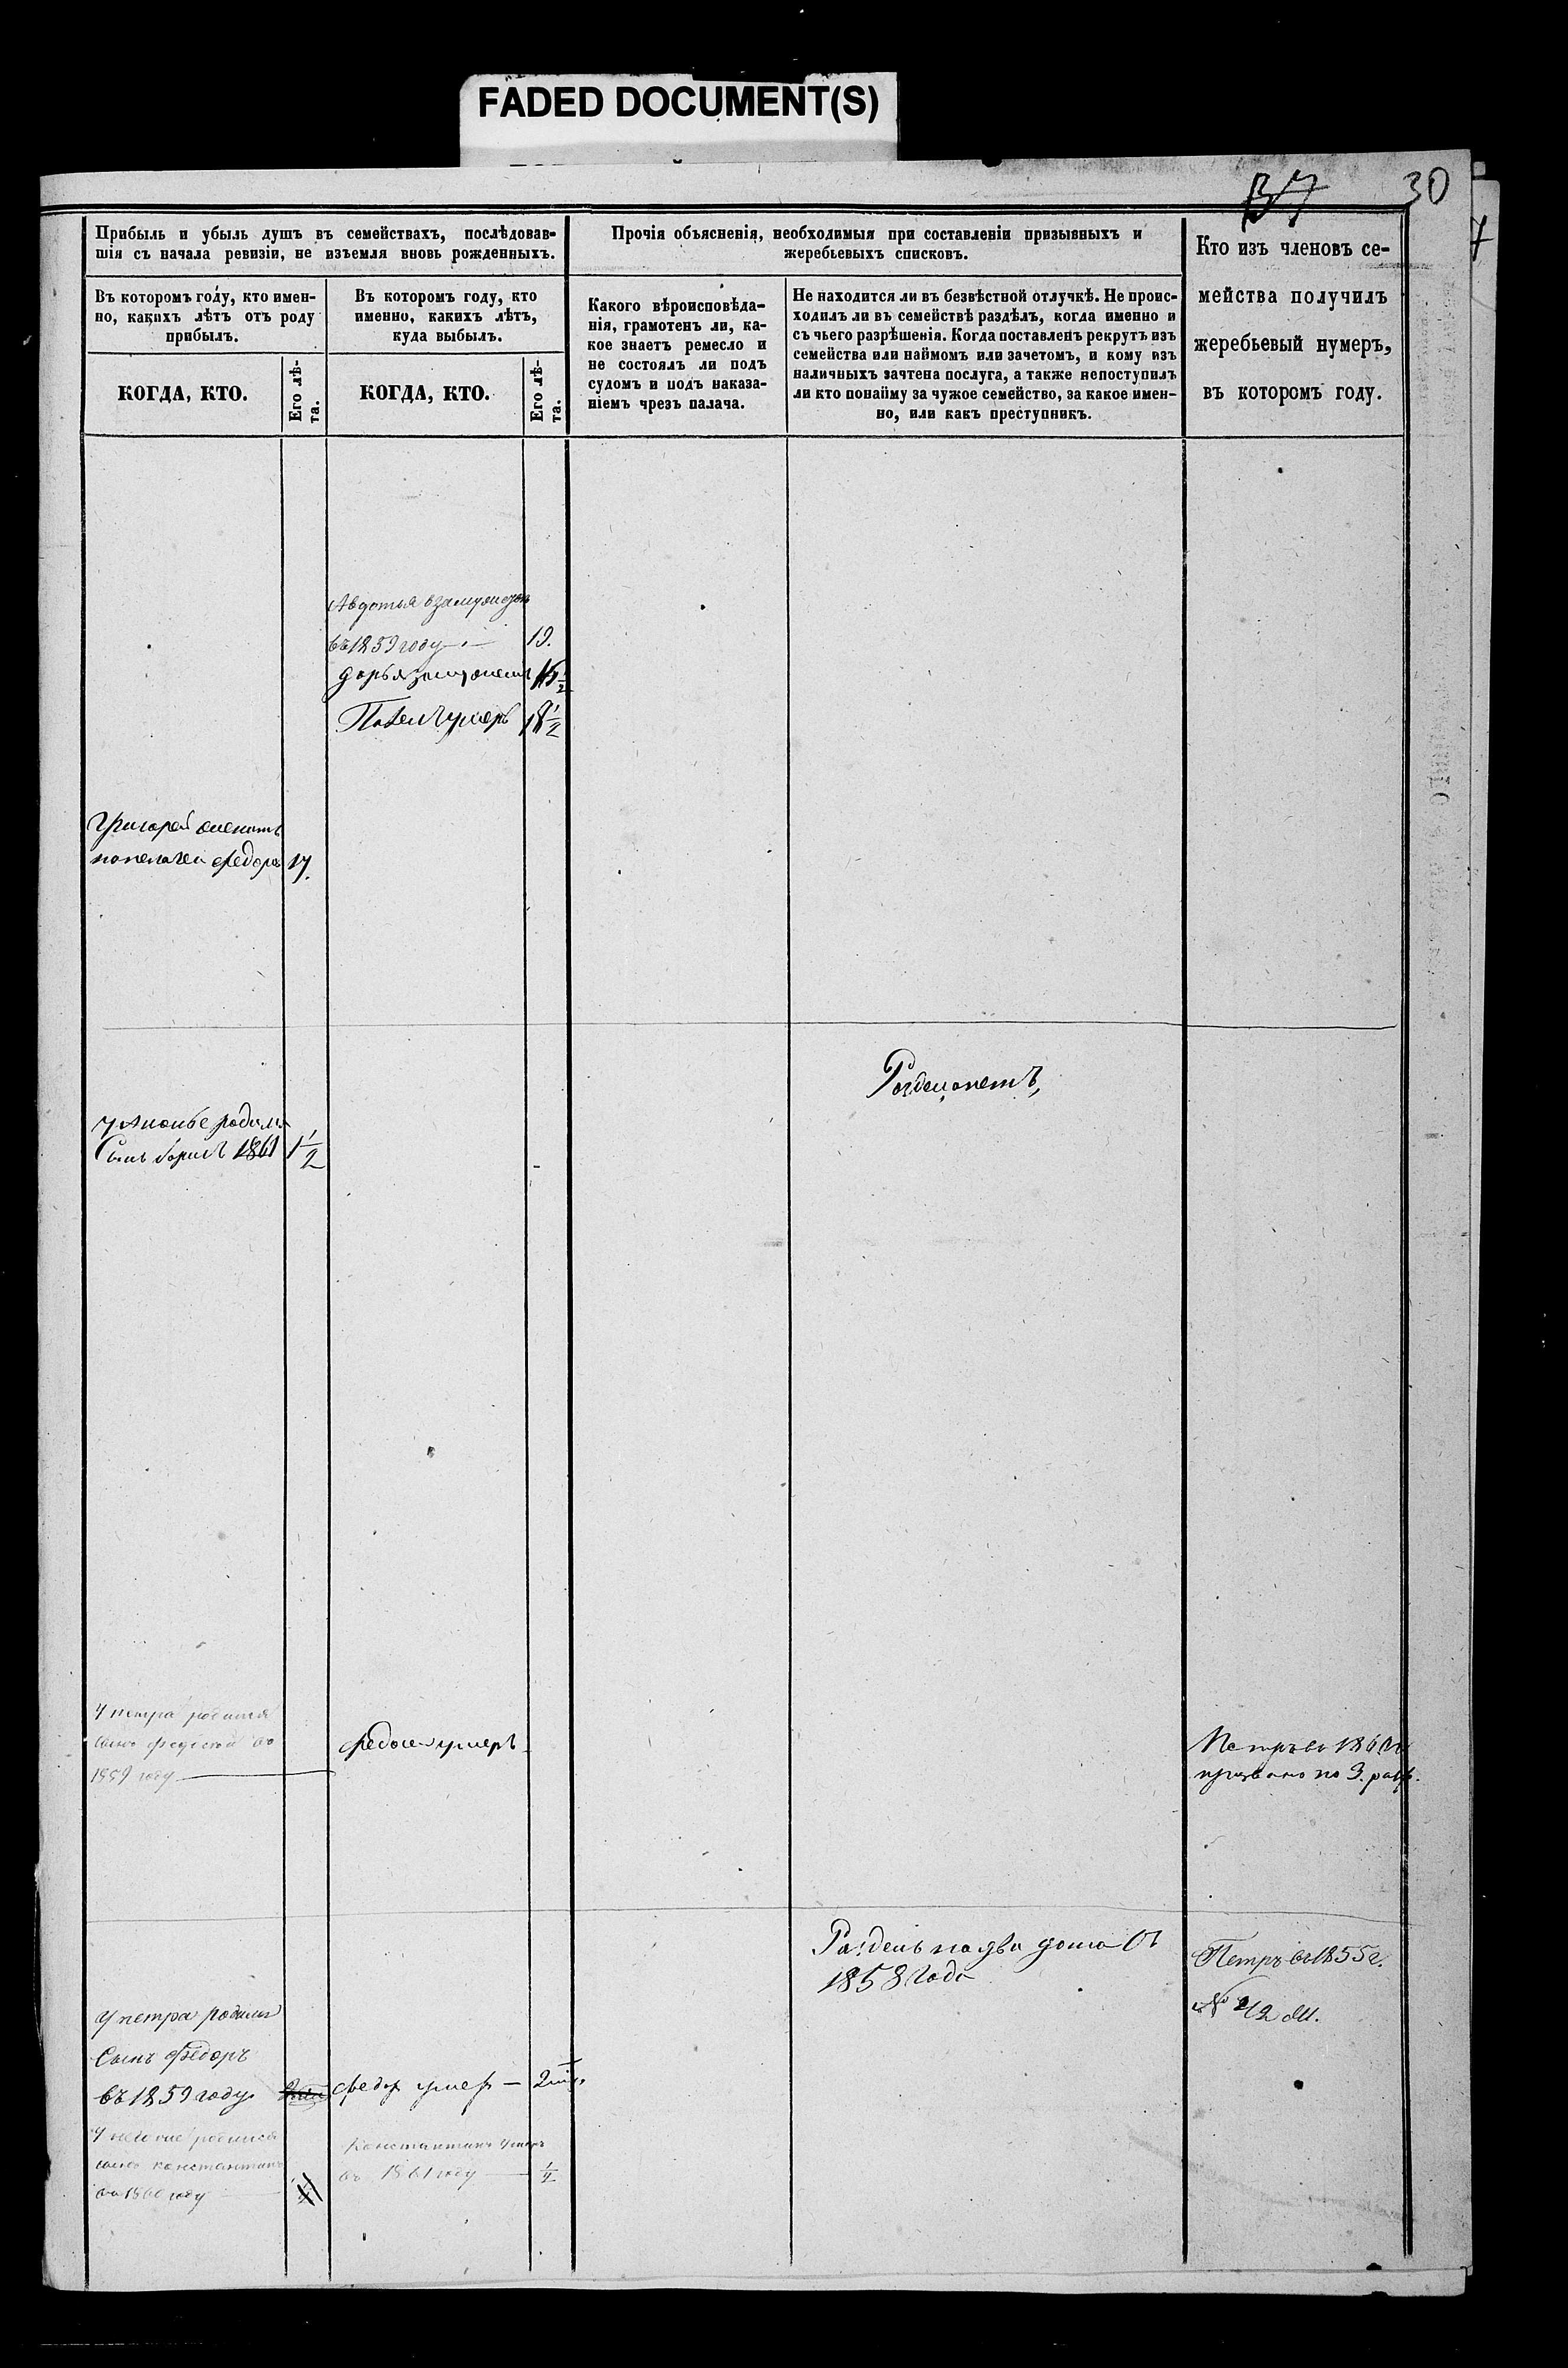 FADED DOCUMENT(S)
30
7
Прибыль и убыль душъ въ семействахъ, послѣдовав-
шія съ начала ревизіи, не изъемля вновь рожденныхъ.
Въ которомъ году, кто имен-
но, какихъ лѣтъ отъ роду
прибылъ.
КОГДА, КТО.
Его лѣ-
та.
Въ которомъ году, кто
именно, какихъ лѣтъ,
куда выбылъ.
КОГДА, КТО.
Его лѣ-
та.
Прочія объясненія, необходимыя при составленіи призывныхъ и
жеребьевыхъ списковъ.
Какого вѣроисповѣда-
нія, грамотенъ ли, ка-
кое знаетъ ремесло и
не состоялъ ли подъ
судомъ и подъ наказа-
ніемъ чрезъ палача.
Не находится ли въ безвѣстной отлучкѣ. Не проис-
ходилъ ли въ семействѣ раздѣлъ, когда именно и
съ чьего разрѣшенія. Когда поставленъ рекрутъ изъ
семейства или наймомъ или зачетомъ, и кому изъ
наличныхъ зачтена послуга, а также непоступилъ
ли кто понайму за чужое семейство, за какое имен-
но, или какъ преступникъ.
Кто изъ членовъ се-
мейства получилъ
жеребьевый нумеръ,
въ которомъ году.
Авдотья взамужество
въ 1859 году 19.
дарья
Павелъ умеръ 18 1/2
Григорей женитъ
федоръ 17.
родился
Сынъ борисъ 1861 1 1/2
У петра родился
сынъ во
1859 году
федосей умеръ
Петръ въ
призвано по 3. разр.
Раздель на два дома съ
1858 года
Петръ въ 1855 г.
№ 42 й.
У петра родился
Сынъ Федоръ
въ 1859 году
федоръ умеръ — 2
родился
сынъ константинъ
во 1860 году
Константинъ умеръ
въ 1861 году 1/2